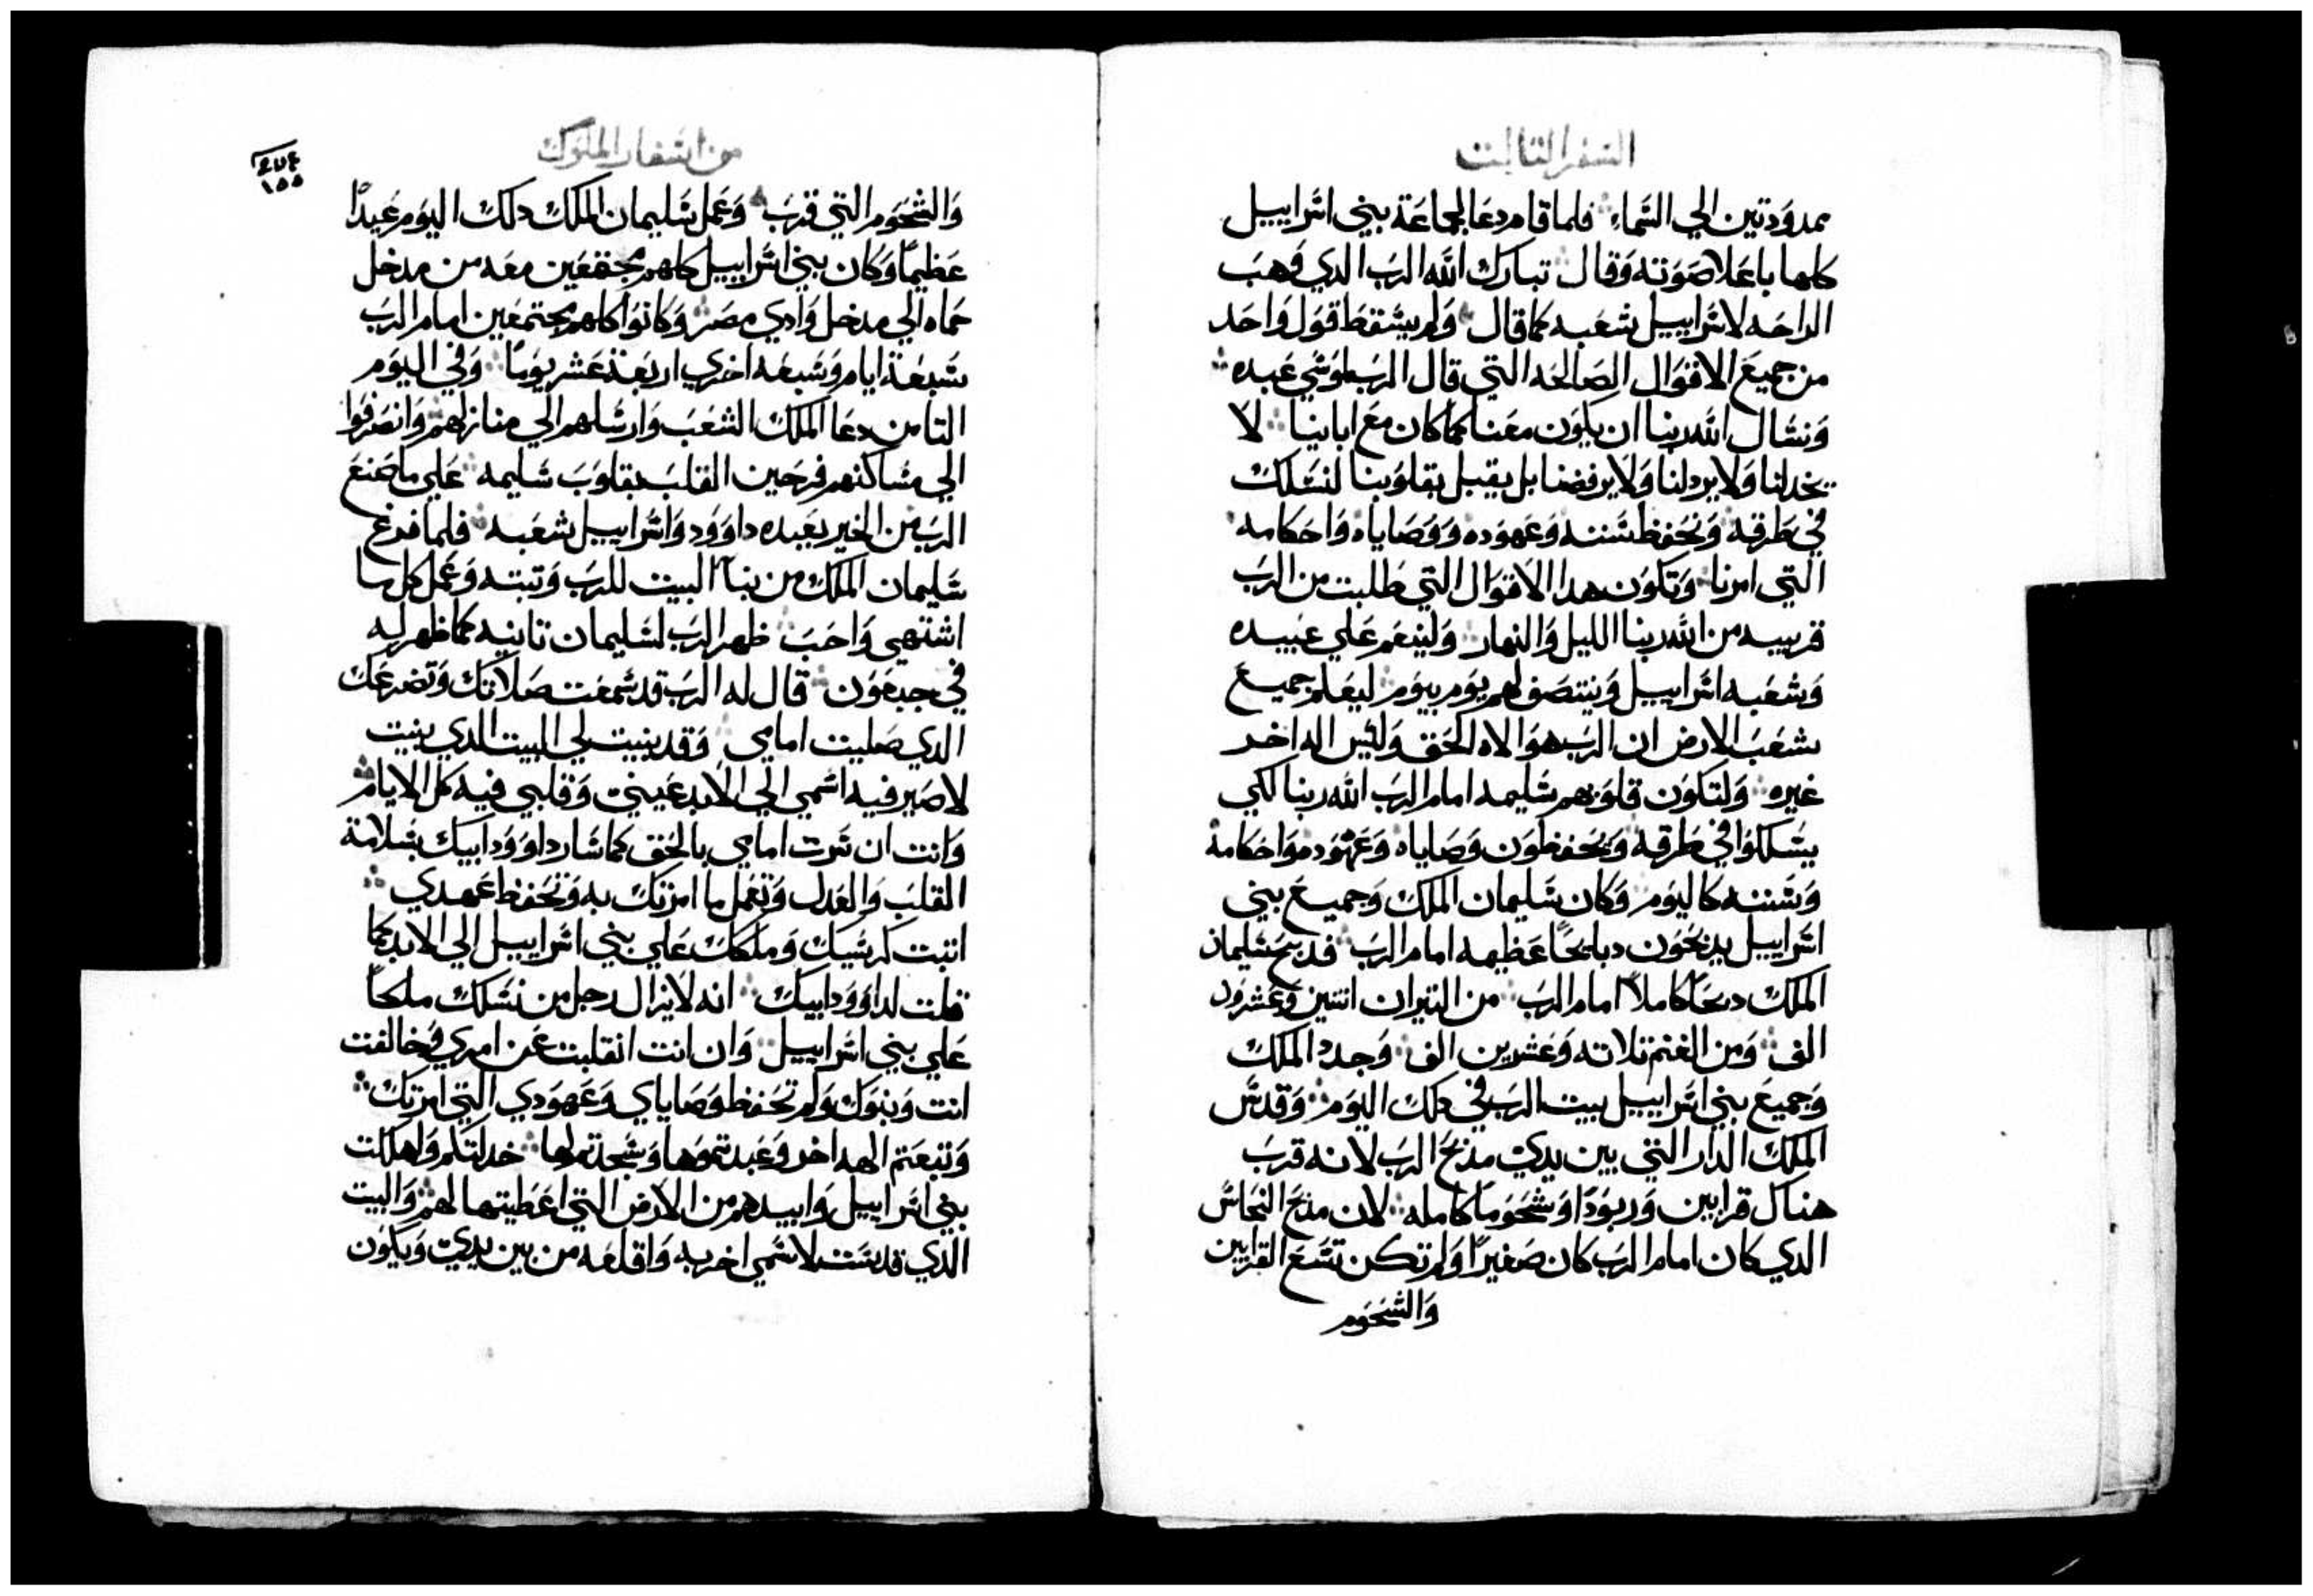 السفر التالت
ممدودتين الي السماء فلما قام دعا لجماعة بيني اسراييل
كلها باعلا صوته وقال تبارك الله الرب الدي وهب
الراحه لاسراييل شعبه كما قال ولم يسقط قول واحد
من جميع الاقوال الصالحه التي قال الرب لموسي عبده
ونسال الله ربنا ان يكون معنا كما كان مع اباينا لا
يخدلنا ولا يردلنا ولا يرفضنا بل يقبل بقلوبنا لنسلك
في طرقه ونحفظ سننه وعهوده ووصاياه واحكامه
التي امرنا وتكون هدا الاقوال التي طلبت من الرب
قريبه من الله ربنا الليل والنهار ولينعم علي عبيده
وشعبه اسراييل وينتصف لهم يوم بيوم ليعلم جميع
شعب الارض ان الرب هو الاه الحق وليس اله اخر
غيره ولتكون قلوبهم سليمه امام الرب الله ربنا لكي
يسلكوا في طرقه ويحفظون وصاياه وعهوده واحكامه
وسننه كاليوم وكان سليمان الملك وجميع بيني
اسراييل يدبحون دبايحًا عظيمه امام الرب فدبح سليمان
الملك دبحًا كاملاً امام الرب من التيران اتنين وعشرون
الف ومن الغنم تلاته وعشرين الف وجدد الملك
وجميع بيني اسراييل بيت الرب في دلك اليوم وقدس
الملك الدار التي بين يدي مدبح الرب لانه قرب
هناك قرابين وربودًا وشحومًا كامله لان مدبح النحاس
الدي كان امام الرب كان صغيرًا ولم تكن تسع القرابين
والشحوم
من اسفار الملوك
٤٧٤
١٥٥
والشحوم التي قرب وعمل سليمان الملك دلك اليوم عيدًا
عظيمًا وكان بيني اسراييل كلهم مجتمعين معه من مدخل
حماه الي مدخل وادي مصر وكانوا كلهم مجتمعين امام الرب
سبعة ايام وسبعه اخري اربعة عشر يومًا وفي اليوم
التامن دعا الملك الشعب وارسلهم الي منازلهم وانصرفوا
الي مساكنهم فرحين القلب بقلوب سليمه علي ما صنع
الرب من الخير بعبده داوود واسراييل شعبه فلما فرغ
سليمان الملك من بنآ البيت للرب وتبته وعمل كل ما
اشتهي واحب ظهر الرب لسليمان تانيه كما ظهر له
في جبعون قال له الرب قد سمعت صلاتك وتضرعك
الدي صليت امامي وقد بنيت لي البيت الدي بنيت
لاصير فيه اسمي الي الابد عيني وقلبي فيه كل الايام
وانت ان سرت امامي بالحق كما سار داوود ابيك بسلامة
القلب والعدل وتعمل ما امرتك به وتحفظ عهدي
اتبت كرسيك وملكك علي بيني اسراييل الي الابد كما
قلت لداوود ابيك انه لا يزال رجل من نسلك ملكاً
علي بيني اسراييل وان انت انقلبت عن امري وخالفت
انت وبنوك ولم تحفظ وصاياي وعهودي التي امرتك
وتبعتم الهه اخر وعبدتموها وسجدتم لها خدلتكم واهلكت
بيني اسراييل وابيدهم من الارض التي اعطيتها لهم والبيت
الدي قدست لاسمي اخربه واقلعه من بين يدي ويكون